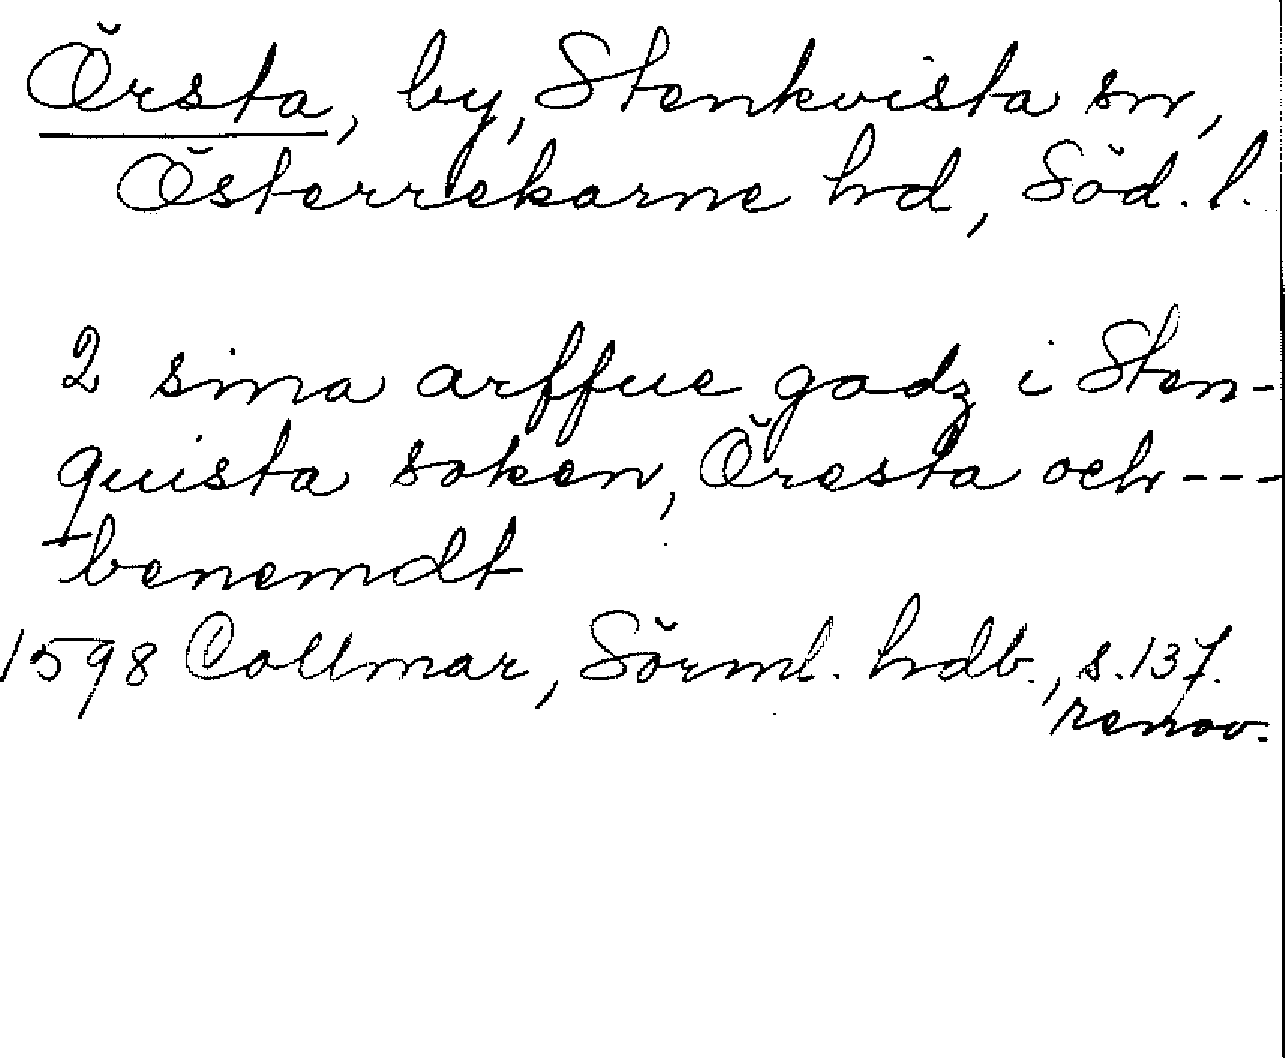 Örsta, by, Stenkvista sn,
Österrekarne hd, Söd. l.
2 sina arffue godz i Sten-
quista soken, Öresta och ---
benemdt
1598 Collmar, Sörml. hdb., s. 137.
renov.